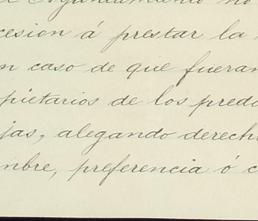 el Ayuntamiento no
cesion á prestar la
n caso de que fueran
pietarios de los predi
jas, alegando derech
mbre, preferencia ó c